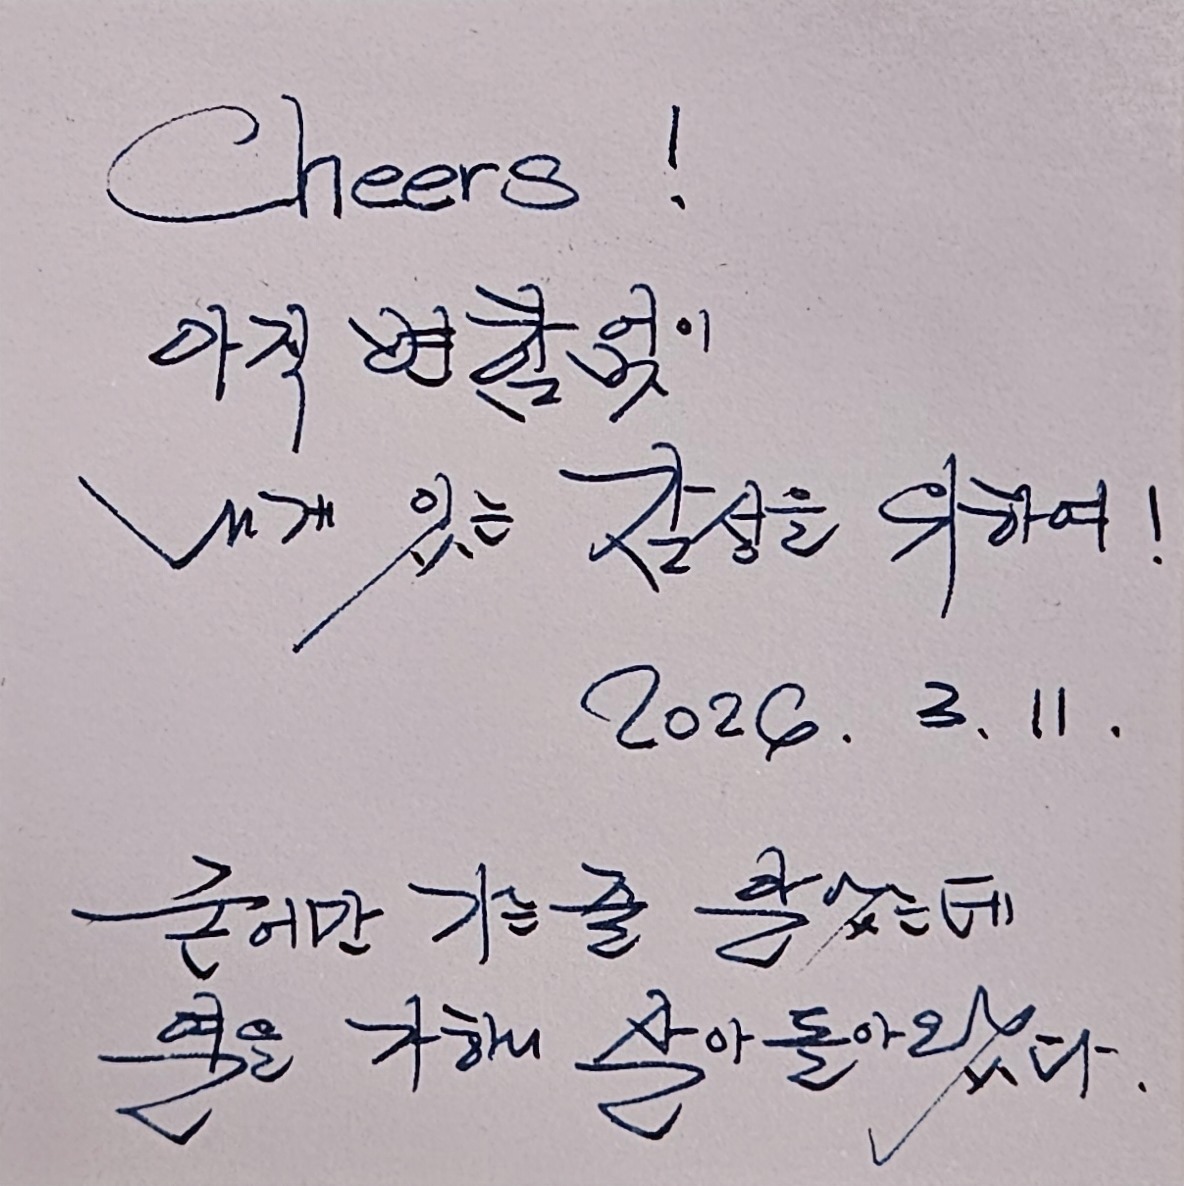 Cheers !
아직 변함없이
내게 있는 감성을 위하여 !
2026. 3. 11.
가는 줄 알았는데
가하니 살아 돌아왔다.